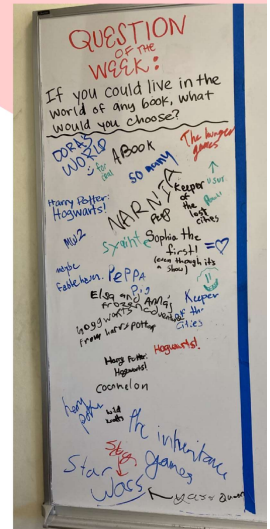 QUESTION
OF THE
WEEK:
If you could live in the
world of any book, what
would you choose?
DORA'S
WORLD
for real
A BOOK
so many
The hunger
games
Harry Potter:
Hogwarts!
NARNIA
Keeper
of the
lost
cities
Sophia the
first!
(even though it's
a show)
maybe
Fablehaven.
PEPPA
Pig
Elsa and Anna's
frozen adventures
hoggwarts
from harry potter
Keeper
of the
Cities
Hogwarts!
Harry Potter:
Hogwarts!
cocomelon
harry
potter
wild
the inheritance
games
Star
Wars